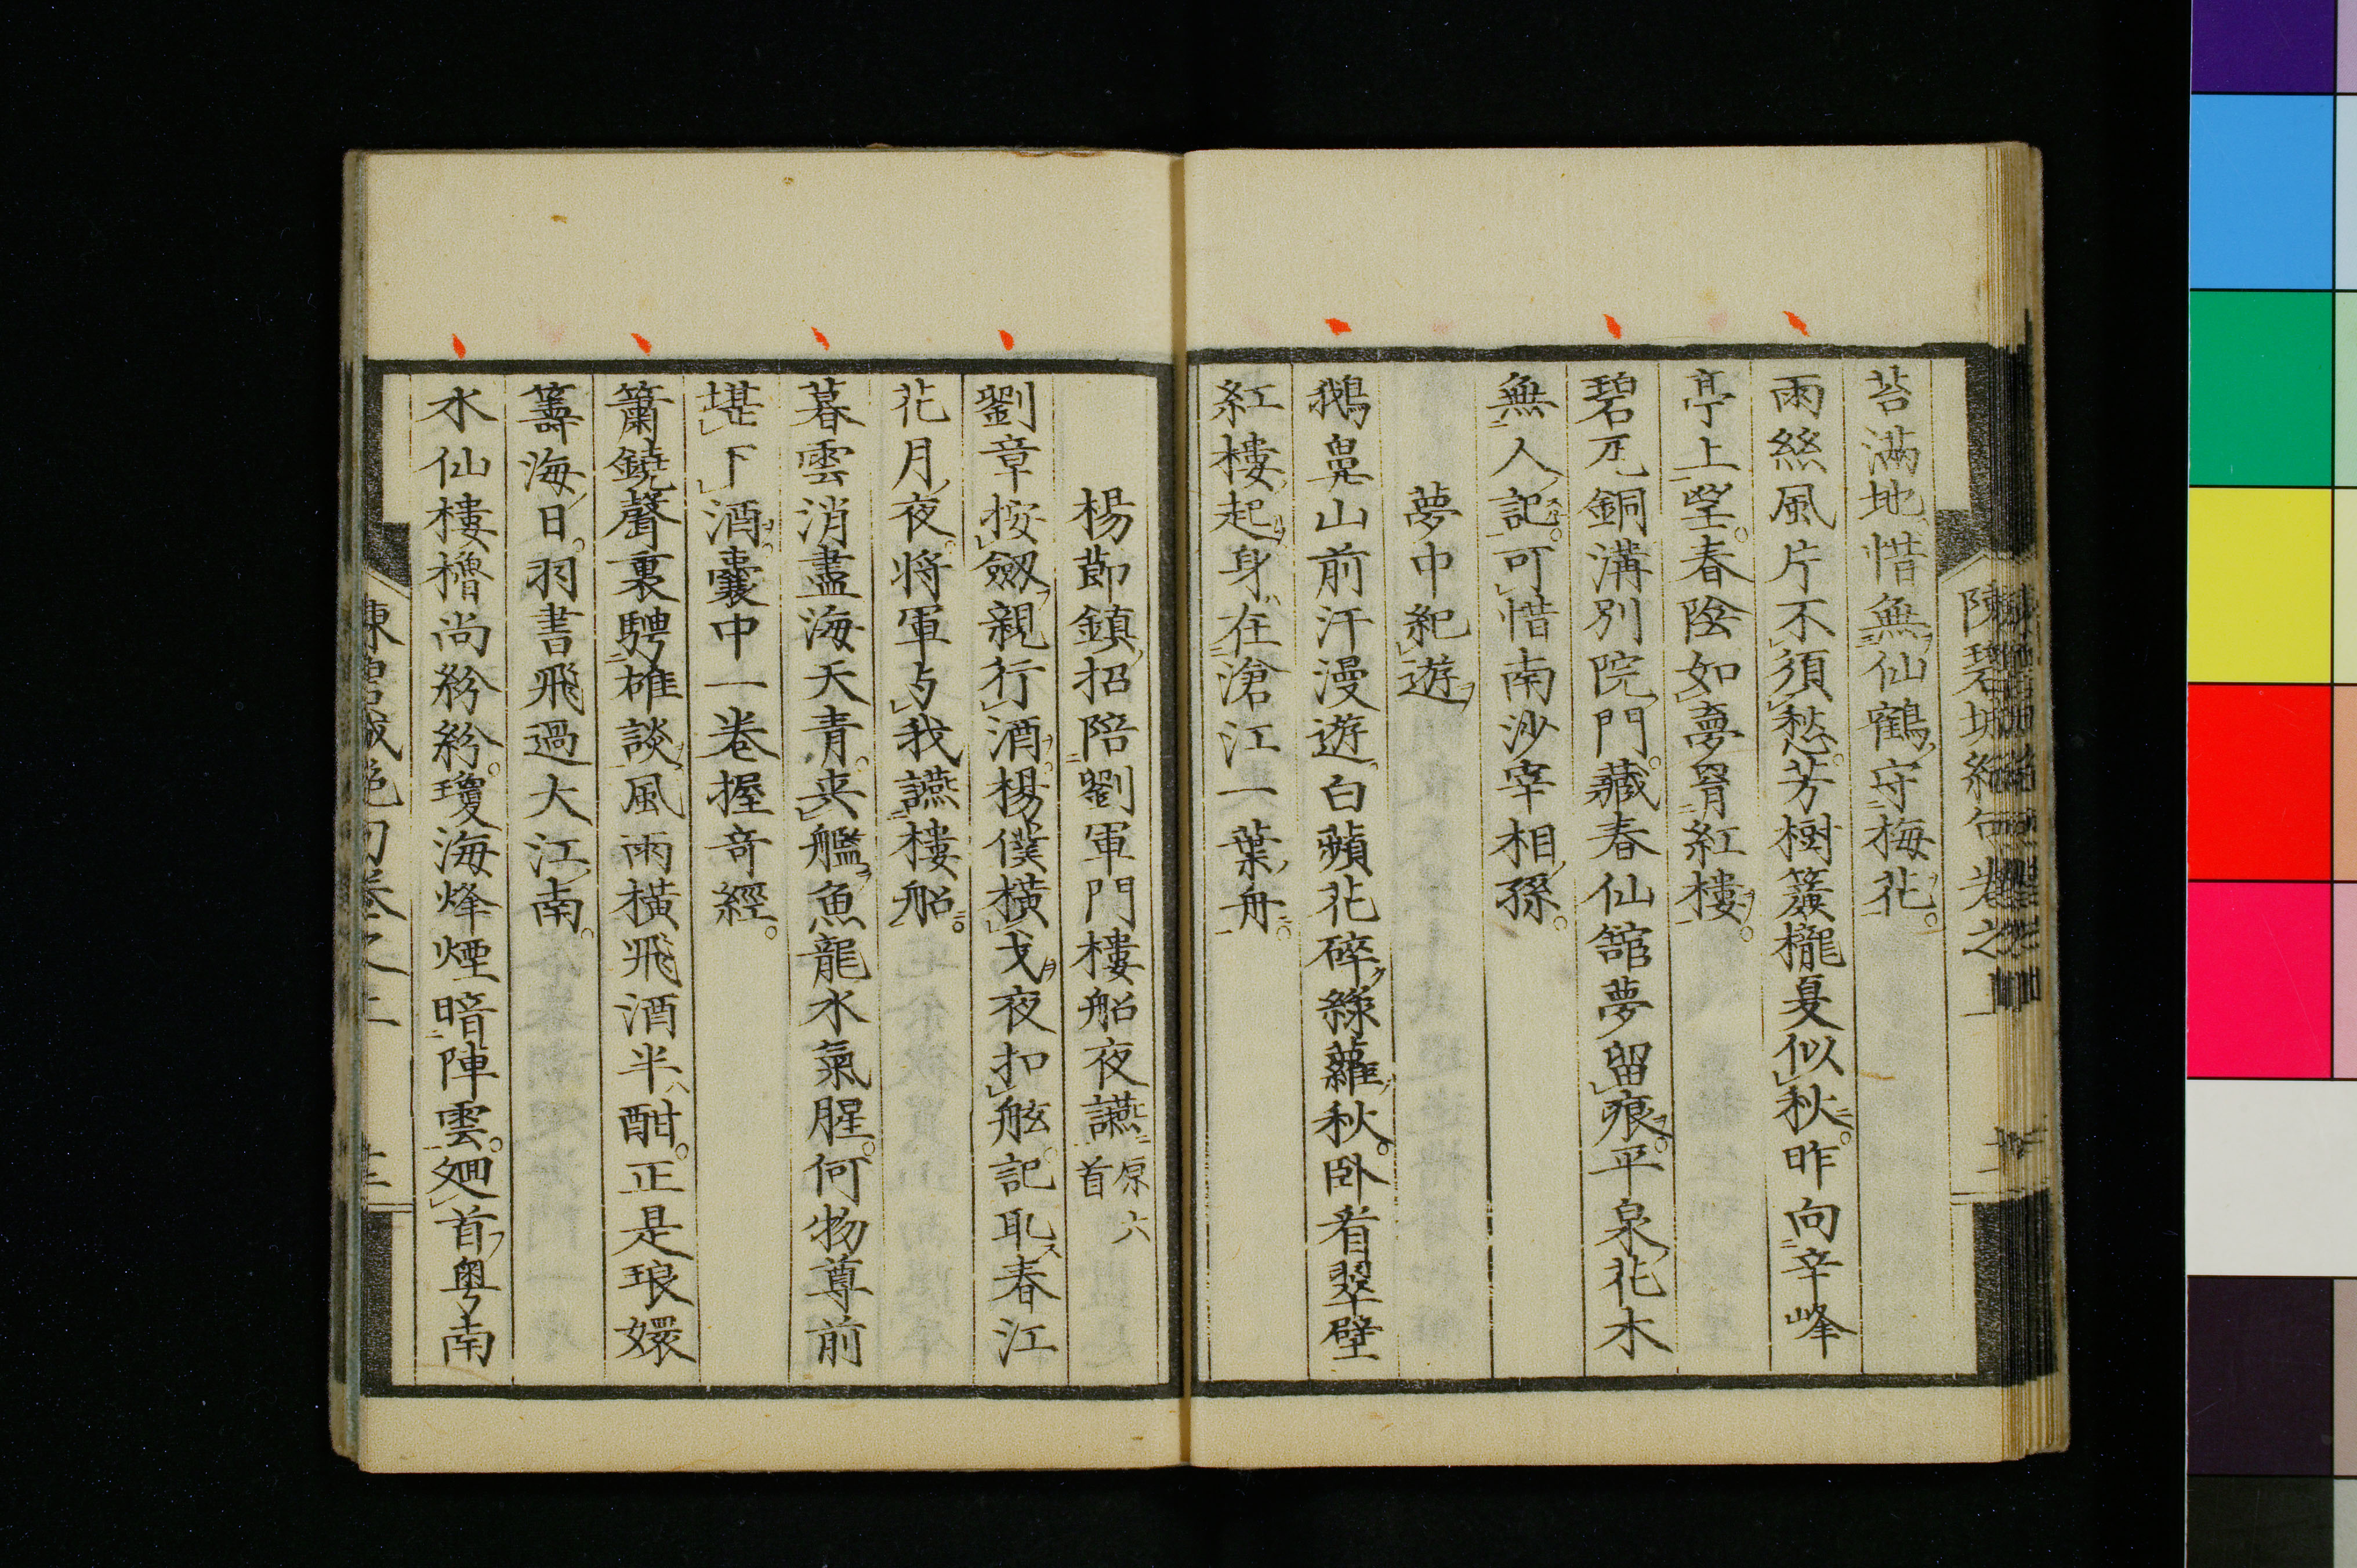 陳碧城絕句卷之上
苔滿地惜無仙鶴守梅花
雨絲風片不須愁芳樹簾櫳夏似秋昨向辛峰
亭上望春陰如夢罥紅樓
碧瓦銅溝別院門藏春仙館夢留痕平泉花木
無人記可惜南沙宰相孫
夢中紀遊
鵝鼻山前汗漫遊白蘋花碎綠蘿秋臥看翠壁
紅樓起身在滄江一葉舟
楊節鎮招陪劉軍門樓船夜讌原六首
劉章按劔親行酒楊僕橫戈夜扣舷記取春江
花月夜將軍与我讌樓船
暮雲消盡海天青夾艦魚龍水氣腥何物尊前
堪下酒囊中一卷握奇經
簫鐃聲裏騁雄談風雨橫飛酒半酣正是琅嬛
籌海日羽書飛過大江南
水仙樓櫓尚紛紛瓊海烽煙暗陣雲廻首粤南